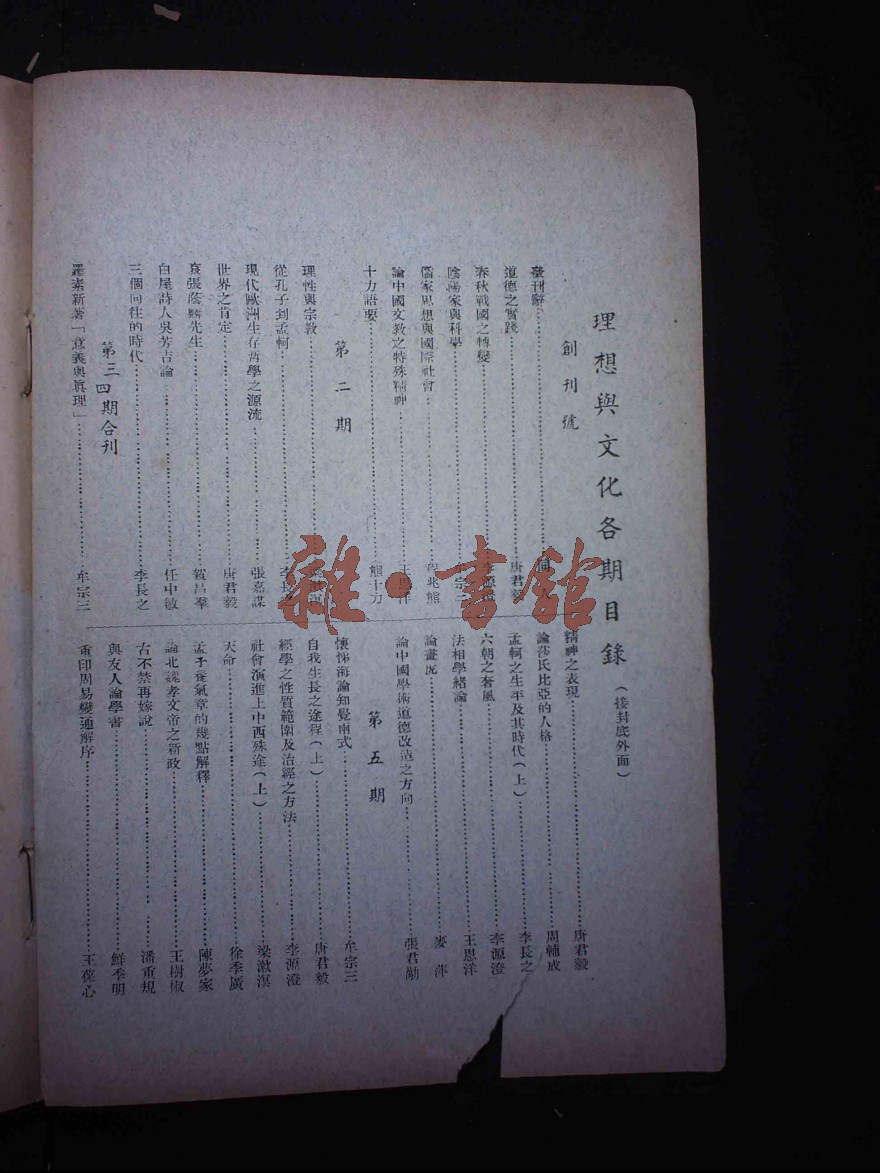 理想與文化各期目錄(接封底外面)
創刊號
發刊辭
道德之實踐 唐君毅
春秋戰國之轉變 李源澄
陰陽家與科學
儒家思想與國際社會 程兆熊
論中國文教之特殊精神 王恩洋
十力語要 熊十力
第二期
理性與宗教
從孔子到孟軻 李長之
現代歐洲生存哲學之源流 張嘉謀
世界之肯定 唐君毅
哀張蔭麟先生 賀昌羣
白屋詩人吳芳吉論 任中敏
三個向往的時代 李長之
第三四期合刊
羅素新著「意義與眞理」 牟宗三
精神之表現 唐君毅
論莎氏比亞的人格 周輔成
孟軻之生年及其時代(上) 李長之
六朝之奢風 李源澄
法相學緒論 王恩洋
論畫虎 麥萍
論中國學術道德改造之方向 張君勱
第五期
懷悌海論知覺兩式 牟宗三
自我生長之途程(上) 唐君毅
經學之性質範圍及治經之方法 李源澄
社會演進上中西殊途(上) 梁漱溟
天命 徐季廣
孟子養氣章的幾點解釋 陳夢家
論北魏孝文帝之新政 王樹椒
古不禁再嫁說 潘重規
與友人論學書 鮮季明
重印周易變通解序 王葆心
雜·書館